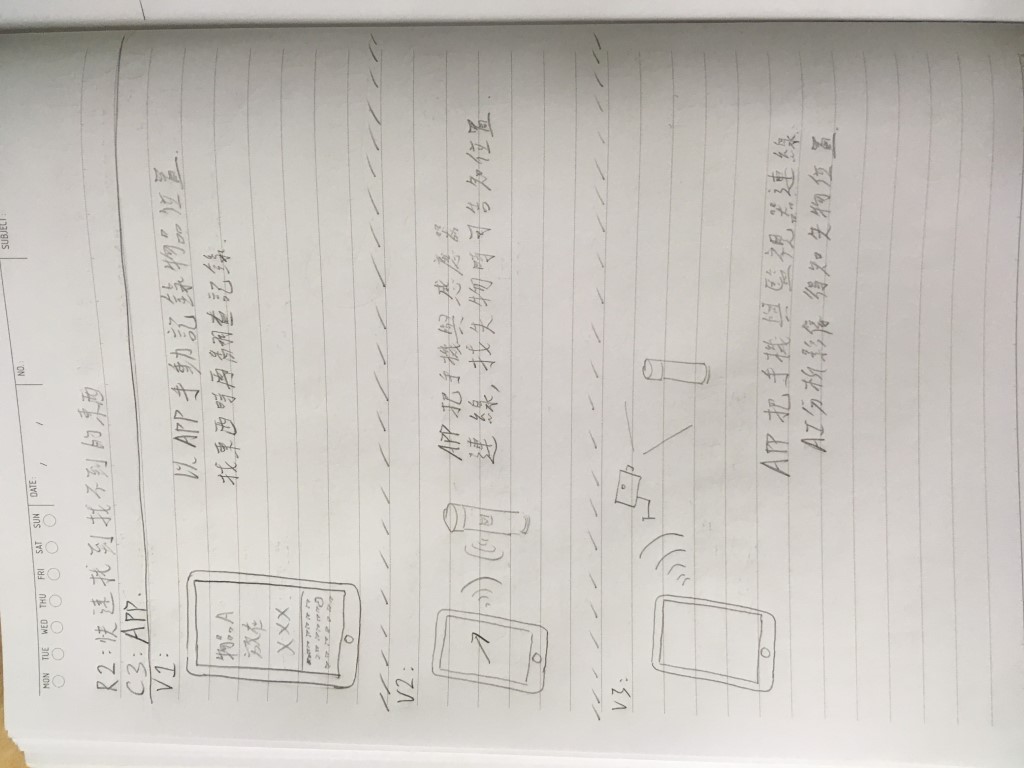 MON TUE WED THU FRI SAT SUN DATE: / / NO. SUBJECT:
R2:快速找到找不到的東西
C3:APP.
V1:
以APP手動記錄物品位置.
找東西時再翻查記錄.
物品A
放在
XXX.
V2:
APP把手機與感應器
連線,找失物時可告知位置.
V3:
APP把手機與監視器連線.
AI分析影像得知失物位置.